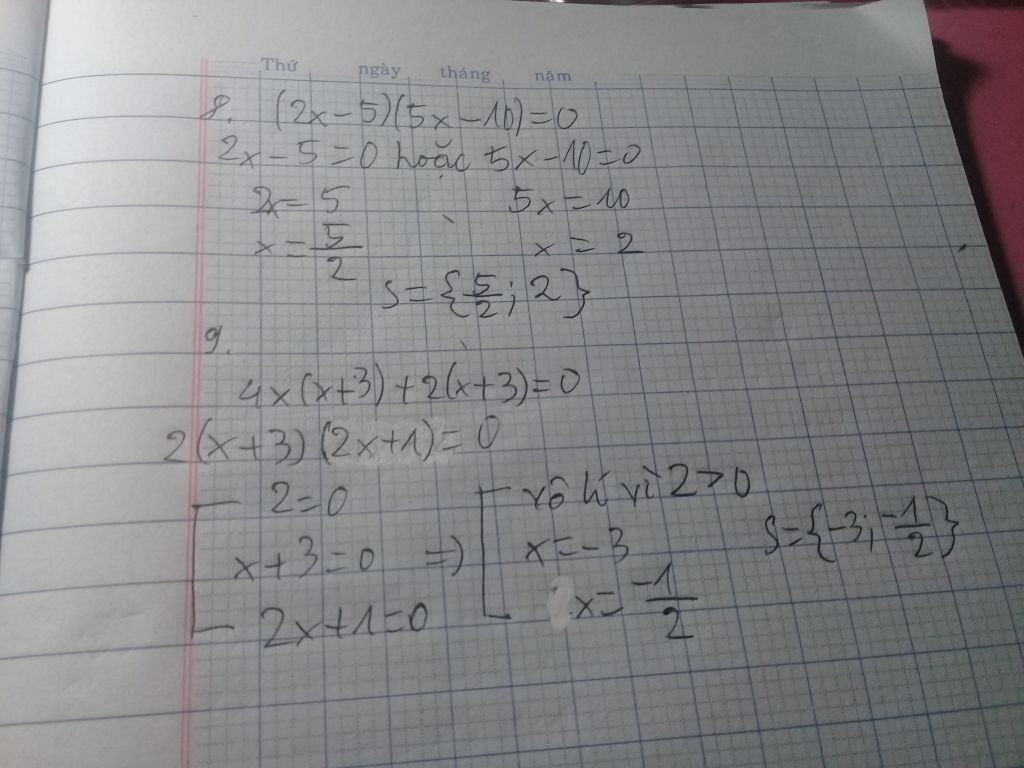 Thứ ngày tháng năm
8. (2x-5)(5x-10)=0
2x-5=0 hoặc 5x-10=0
2x=5 5x=10
x=5/2 x=2
S={5/2; 2}
9.
4x(x+3)+2(x+3)=0
2(x+3)(2x+1)=0
2=0 vô lí vì 2>0
x+3=0 => x=-3 S={-3; -1/2}
2x+1=0 x=-1/2